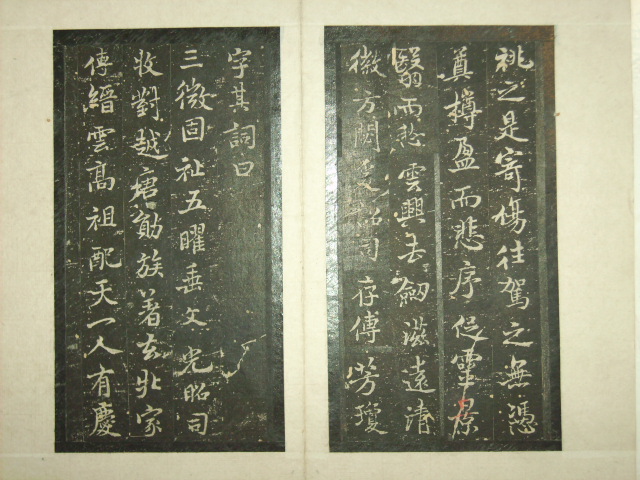 祧之是寄傷往駕之無憑
奠樽盈而悲序促靈祭
翳而愁雲興去劒滋遠清
徽方閟爰紹司存傳芳瓊
字其詞曰
三微固祉五曜垂文光昭司
牧對越唐勛族著玄牝家
傳縉雲高祖配天一人有慶